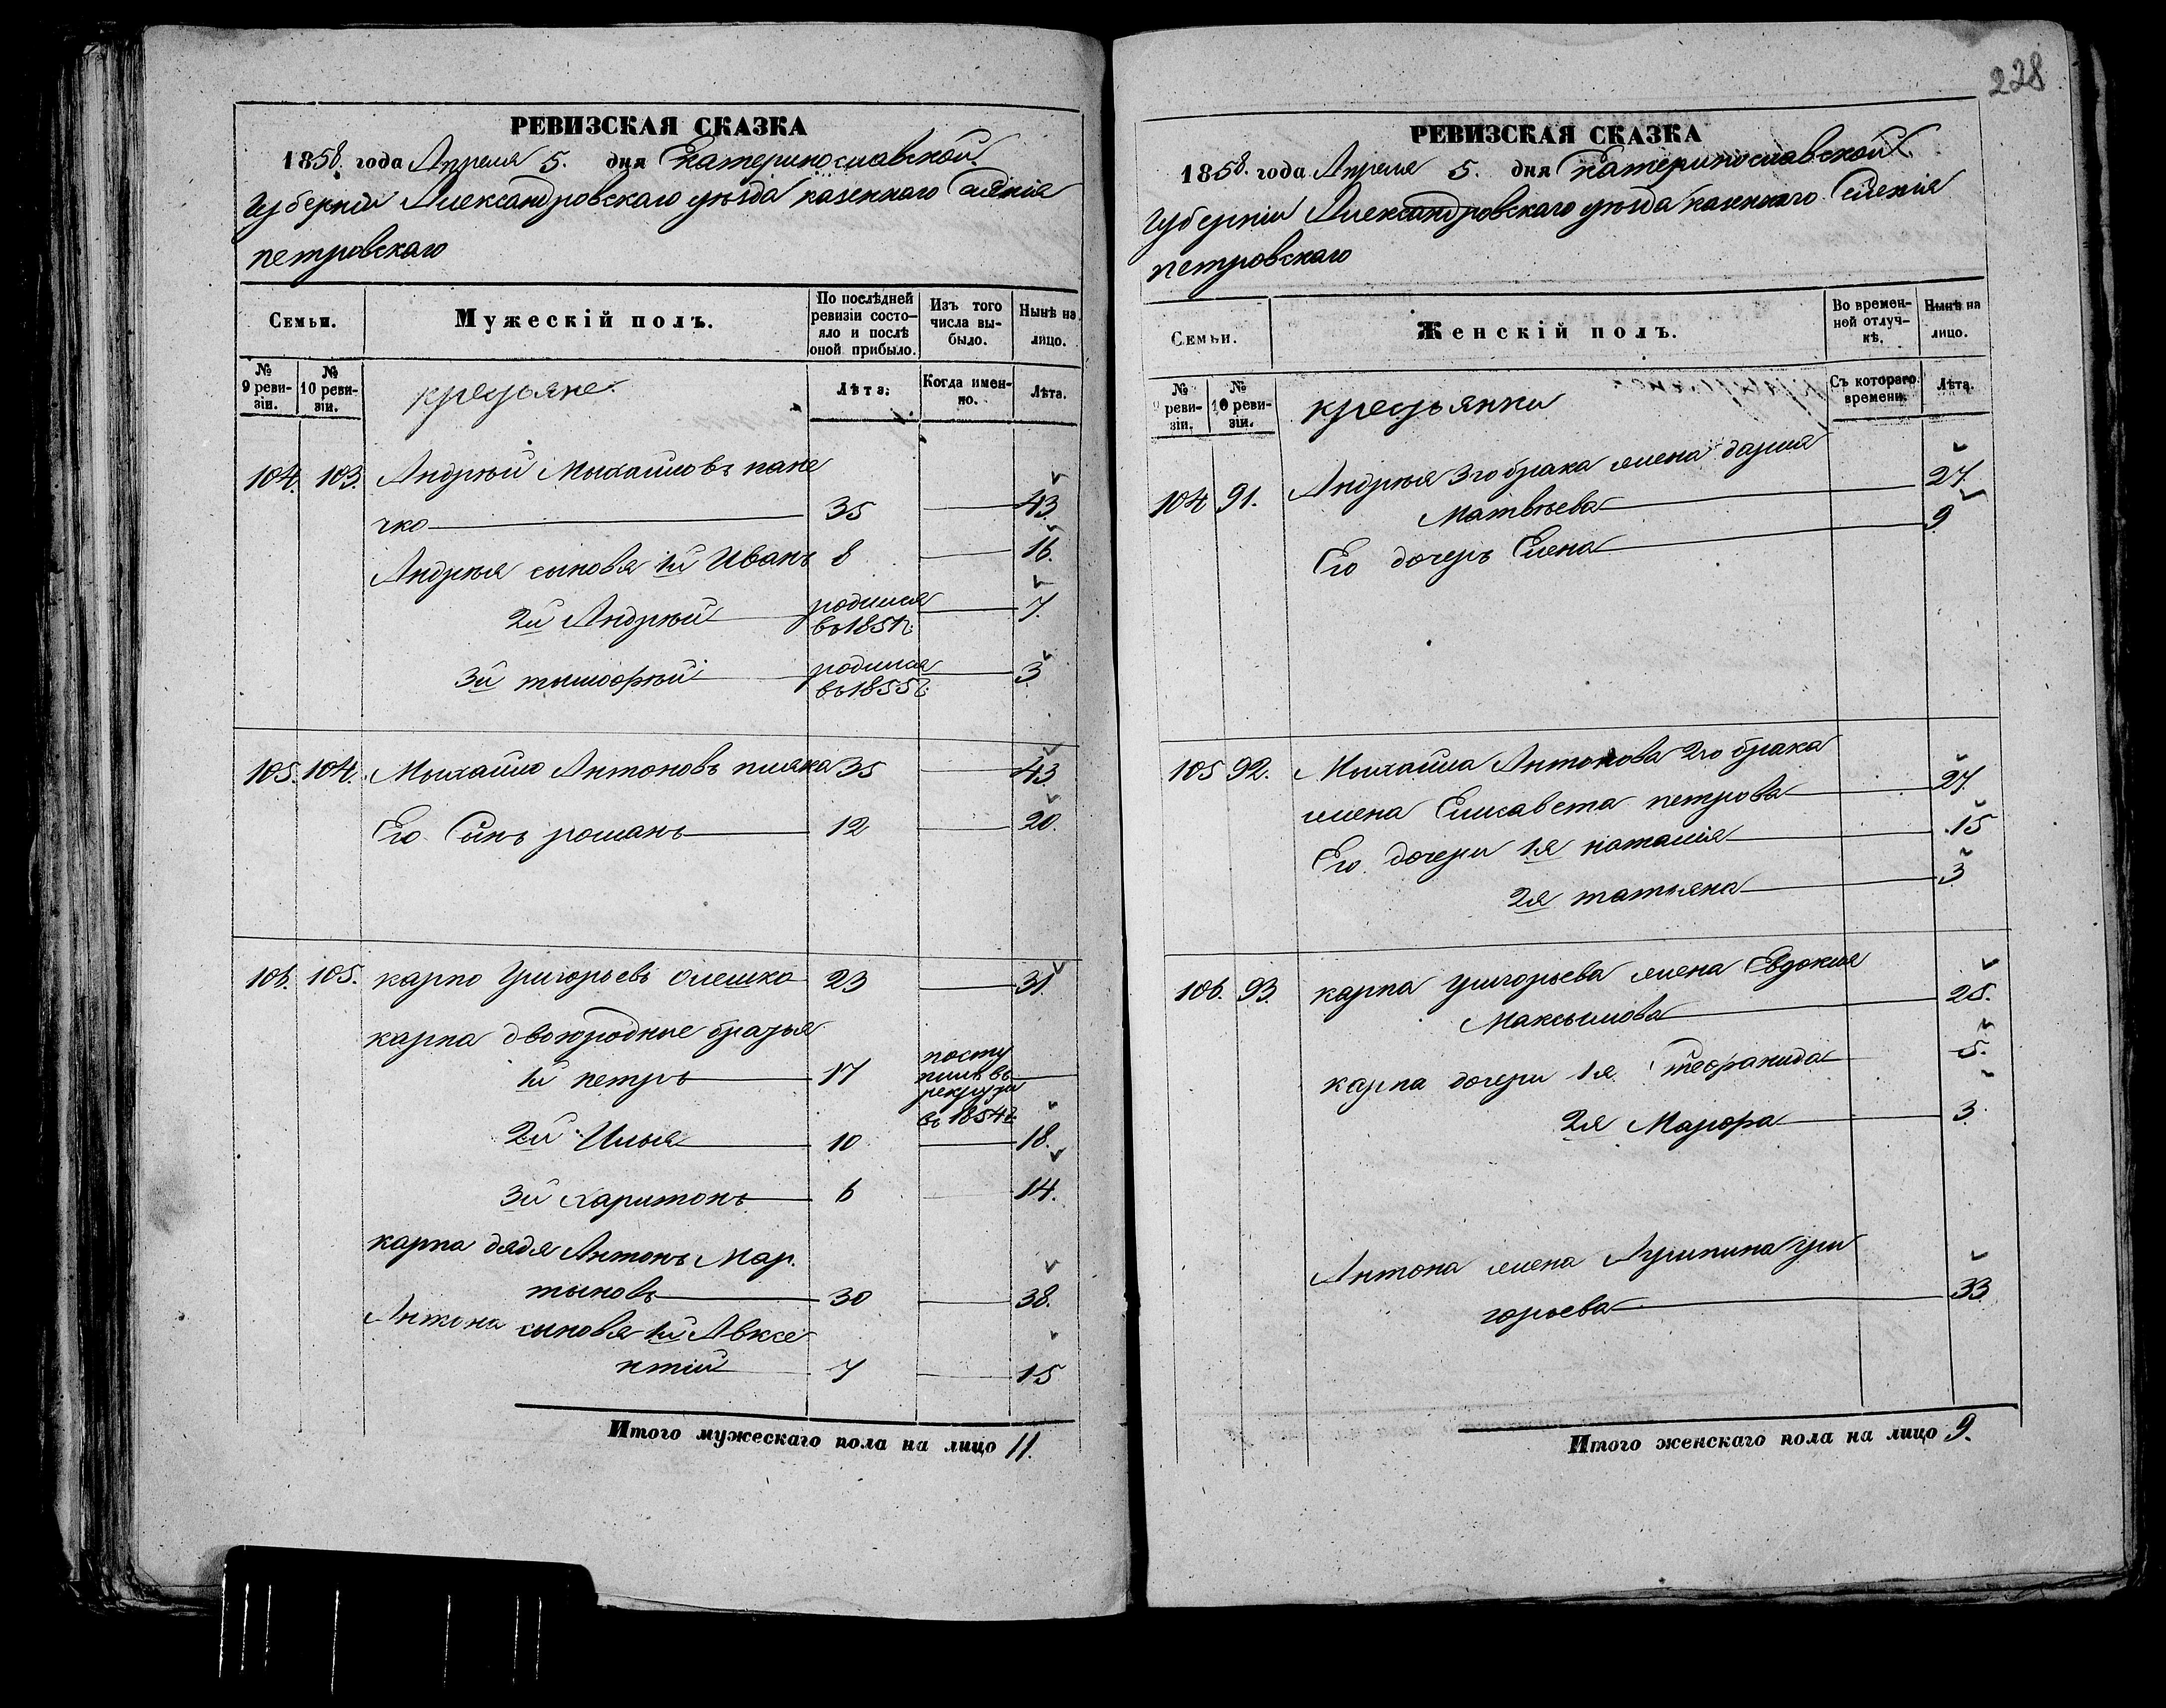 РЕВИЗСКАЯ СКАЗКА
1858. года Апреля 5. дня Екатеринославской
Губерніи Александровскаго уѣзда казеннаго Селенія
петровскаго
Семьи.
Мужескій полъ.
По послѣдней ревизіи состояло и послѣ оной прибыло.
Изъ того числа выбыло.
Нынѣ на лицо.
№ 9 ревизіи.
№ 10 ревизіи.
крестьяне.
Лѣта.
Когда именно.
Лѣта.
104. 103. Андрѣй Михайловъ пане
чко 35 43.
Андрѣя сыновья 1й Иванъ 8 16.
2й Андрѣй родился въ 1851г. 7.
3й тымофѣй родился въ 1855г. 3.
105. 104. Мыхайло Антоновъ пляка 35 43.
Его Сынъ романъ 12 20.
106. 105. карпо Григорьевъ олешко 23 31.
карпа двоюродные братья
1й петръ 17 посту
пилъ въ
рекруты
въ 1854г.
2й Илья 10 18.
3й харитонъ 6 14.
карпа дядя Антонъ Мар.
тыновъ 30 38.
Антона сыновья 1й Авксе
нтій 7 15
Итого мужескаго пола на лицо 11.
228
РЕВИЗСКАЯ СКАЗКА
1858. года Апреля 5. дня Екатеринославской
Губерніи Александровскаго уѣзда казеннаго Селенія
петровскаго
Семьи.
Женскій полъ.
Во временной отлучкѣ.
Нынѣ на лицо.
№ 9 ревизіи.
№ 10 ревизіи.
крестьянки
Съ котораго времени.
Лѣта.
104 91. Андрѣя 3го брака жена дарья
Матвѣева 27.
Его дочерь Елена 9
105 92. Мыхайла Антонова 2го брака
жена Елисавета петрова 27.
Его дочери 1я наталія 15
2я татьяна 3
106. 93. карпа Григорьева жена Евдокия
Максымова 25.
карпа дочери 1я Феофанида 5.
2я Мавра 3.
Антона жена Агрипина Гри
горьева 33
Итого женскаго пола на лицо 9.